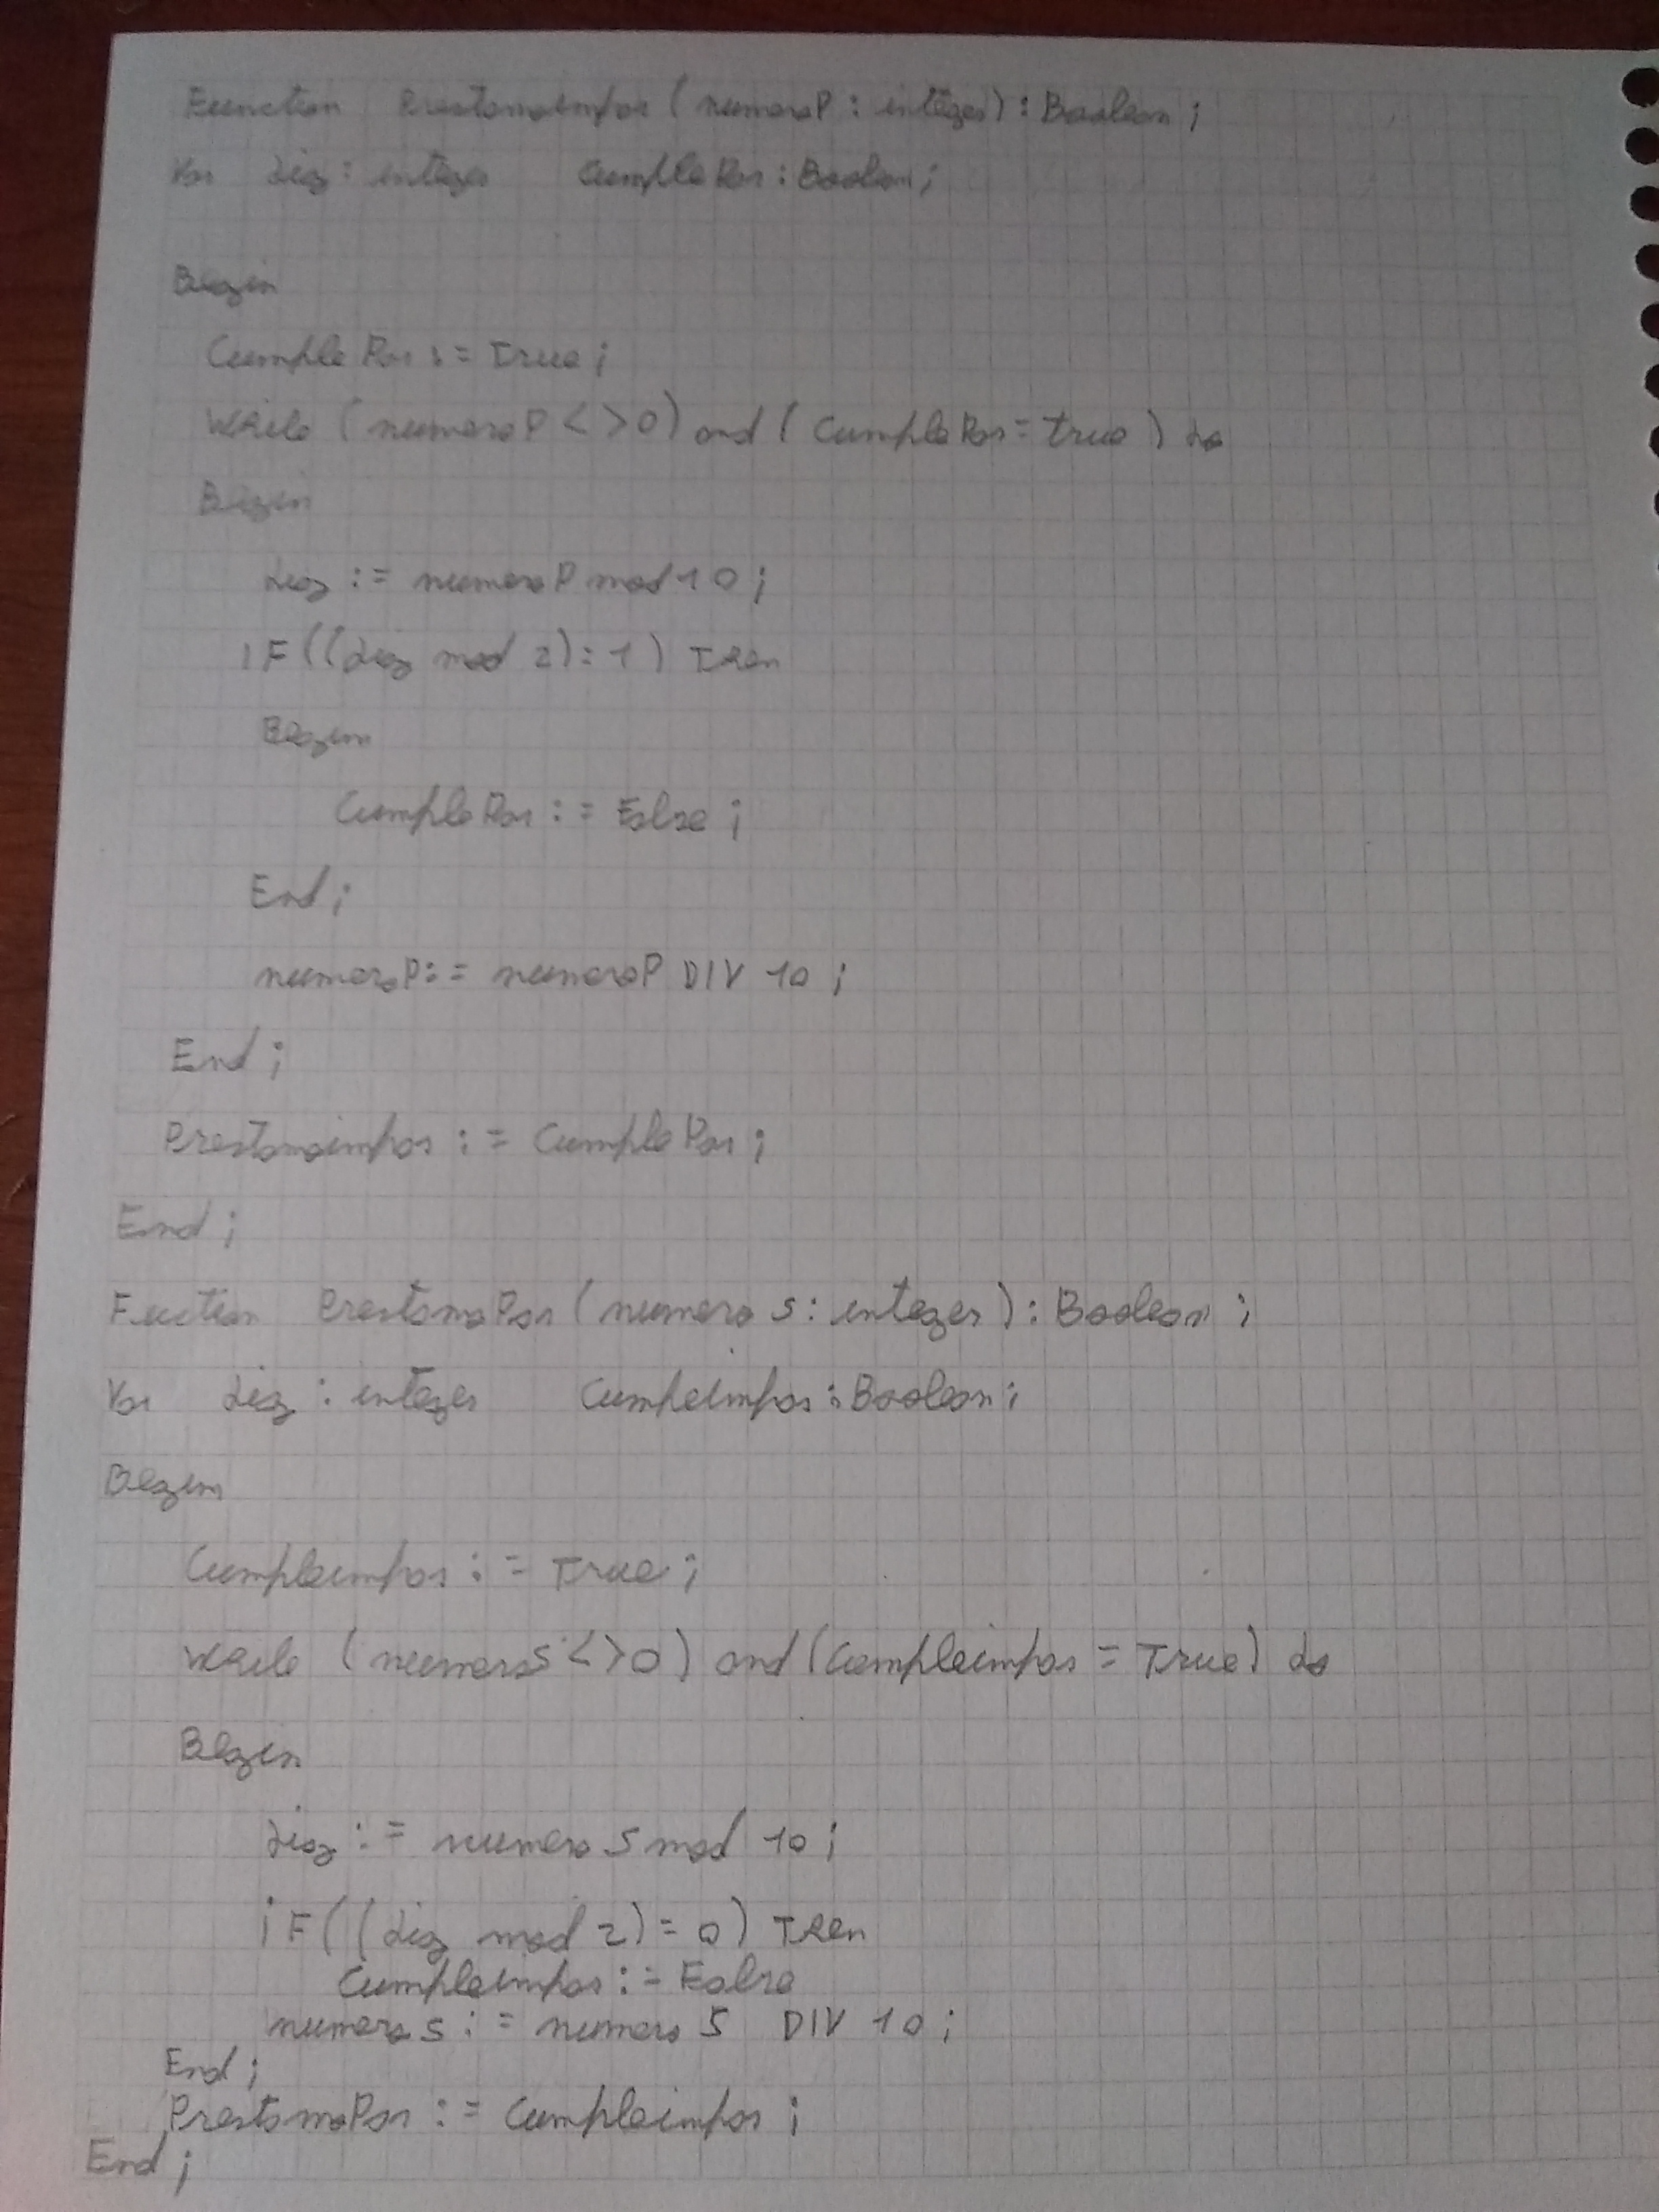 Function Prestamoimpar (numeroP : integer) : Boolean ;
Var dig : integer CumplePar : Boolean ;
Begin
CumplePar := True ;
While (numeroP <> 0) and (CumplePar = true) do
Begin
dig := numeroP mod 10 ;
iF ((dig mod 2) = 1) Then
Begin
CumplePar := False ;
End ;
numeroP := numeroP DIV 10 ;
End ;
Prestamoimpar := CumplePar ;
End ;
Fuction PrestamoPar (numeroS : integer) : Boolean ;
Var dig : integer Cumpleimpar : Boolean ;
Begin
Cumpleimpar := True ;
While (numeroS <> 0) and (Cumpleimpar = True) do
Begin
dig := numeroS mod 10 ;
iF ((dig mod 2) = 0) Then
Cumpleimpar := False
numeroS := numeroS DIV 10 ;
End ;
PrestamoPar := Cumpleimpar ;
End ;